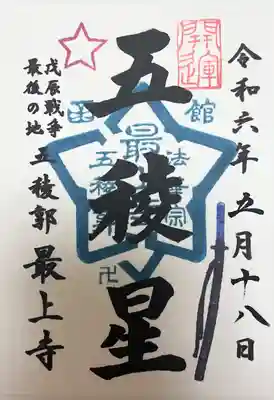 令和六年五月十八日
開運
五稜星
函館
法華宗
最
五稜郭
卍
戊辰戦争
最後の地
五稜郭 最上寺